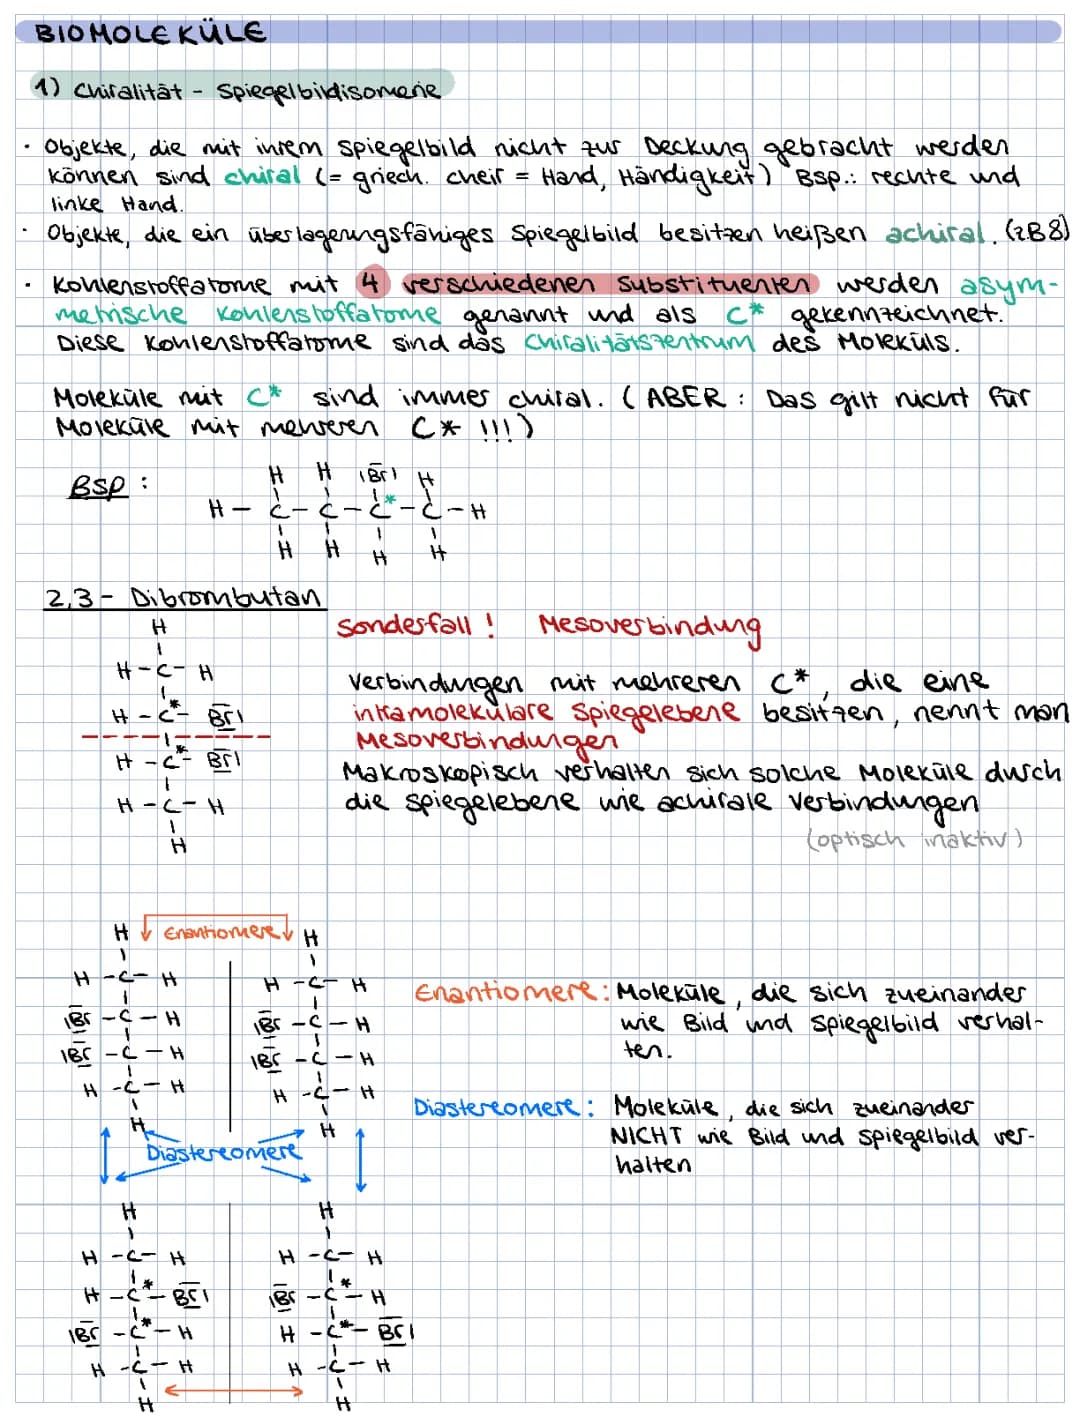 BIOMOLEKÜLE
1) Chiralität - Spiegelbildisomerie
· Objekte, die mit ihrem Spiegelbild nicht zur Deckung gebracht werden
können sind chiral (= griech. cheir = Hand, Händigkeit) Bsp.: rechte und
linke Hand.
· Objekte, die ein überlagerungsfähiges Spiegelbild besitzen heißen achiral. (zB 8)
· Kohlenstoffatome mit 4 verschiedenen Substituenten werden asym-
metrische Kohlenstoffatome genannt und als C* gekennzeichnet.
Diese Kohlenstoffatome sind das Chiralitätszentrum des Moleküls.
Moleküle mit C* sind immer chiral. (ABER: Das gilt nicht für
Moleküle mit mehreren C* !!!)
Bsp:
H H |Br| H
H - C - C - C* - C - H
H H H H
2,3 - Dibrombutan
Sonderfall! Mesoverbindung
H
H - C - H
H - C* - Br|
H - C* - Br|
H - C - H
H
Verbindungen mit mehreren C*, die eine
intramolekulare Spiegelebene besitzen, nennt man
Mesoverbindungen
Makroskopisch verhalten sich solche Moleküle durch
die Spiegelebene wie achirale Verbindungen
(optisch inaktiv)
H Enantiomere H
H - C - H H - C - H
|Br - C - H |Br - C - H
|Br - C - H |Br - C - H
H - C - H H - C - H
H H
Enantiomere: Moleküle, die sich zueinander
wie Bild und Spiegelbild verhal-
ten.
Diastereomere: Moleküle, die sich zueinander
NICHT wie Bild und Spiegelbild ver-
halten
Diastereomere
H H
H - C - H H - C - H
H - C* - Br| |Br - C* - H
|Br - C* - H H - C* - Br|
H - C - H H - C - H
H H